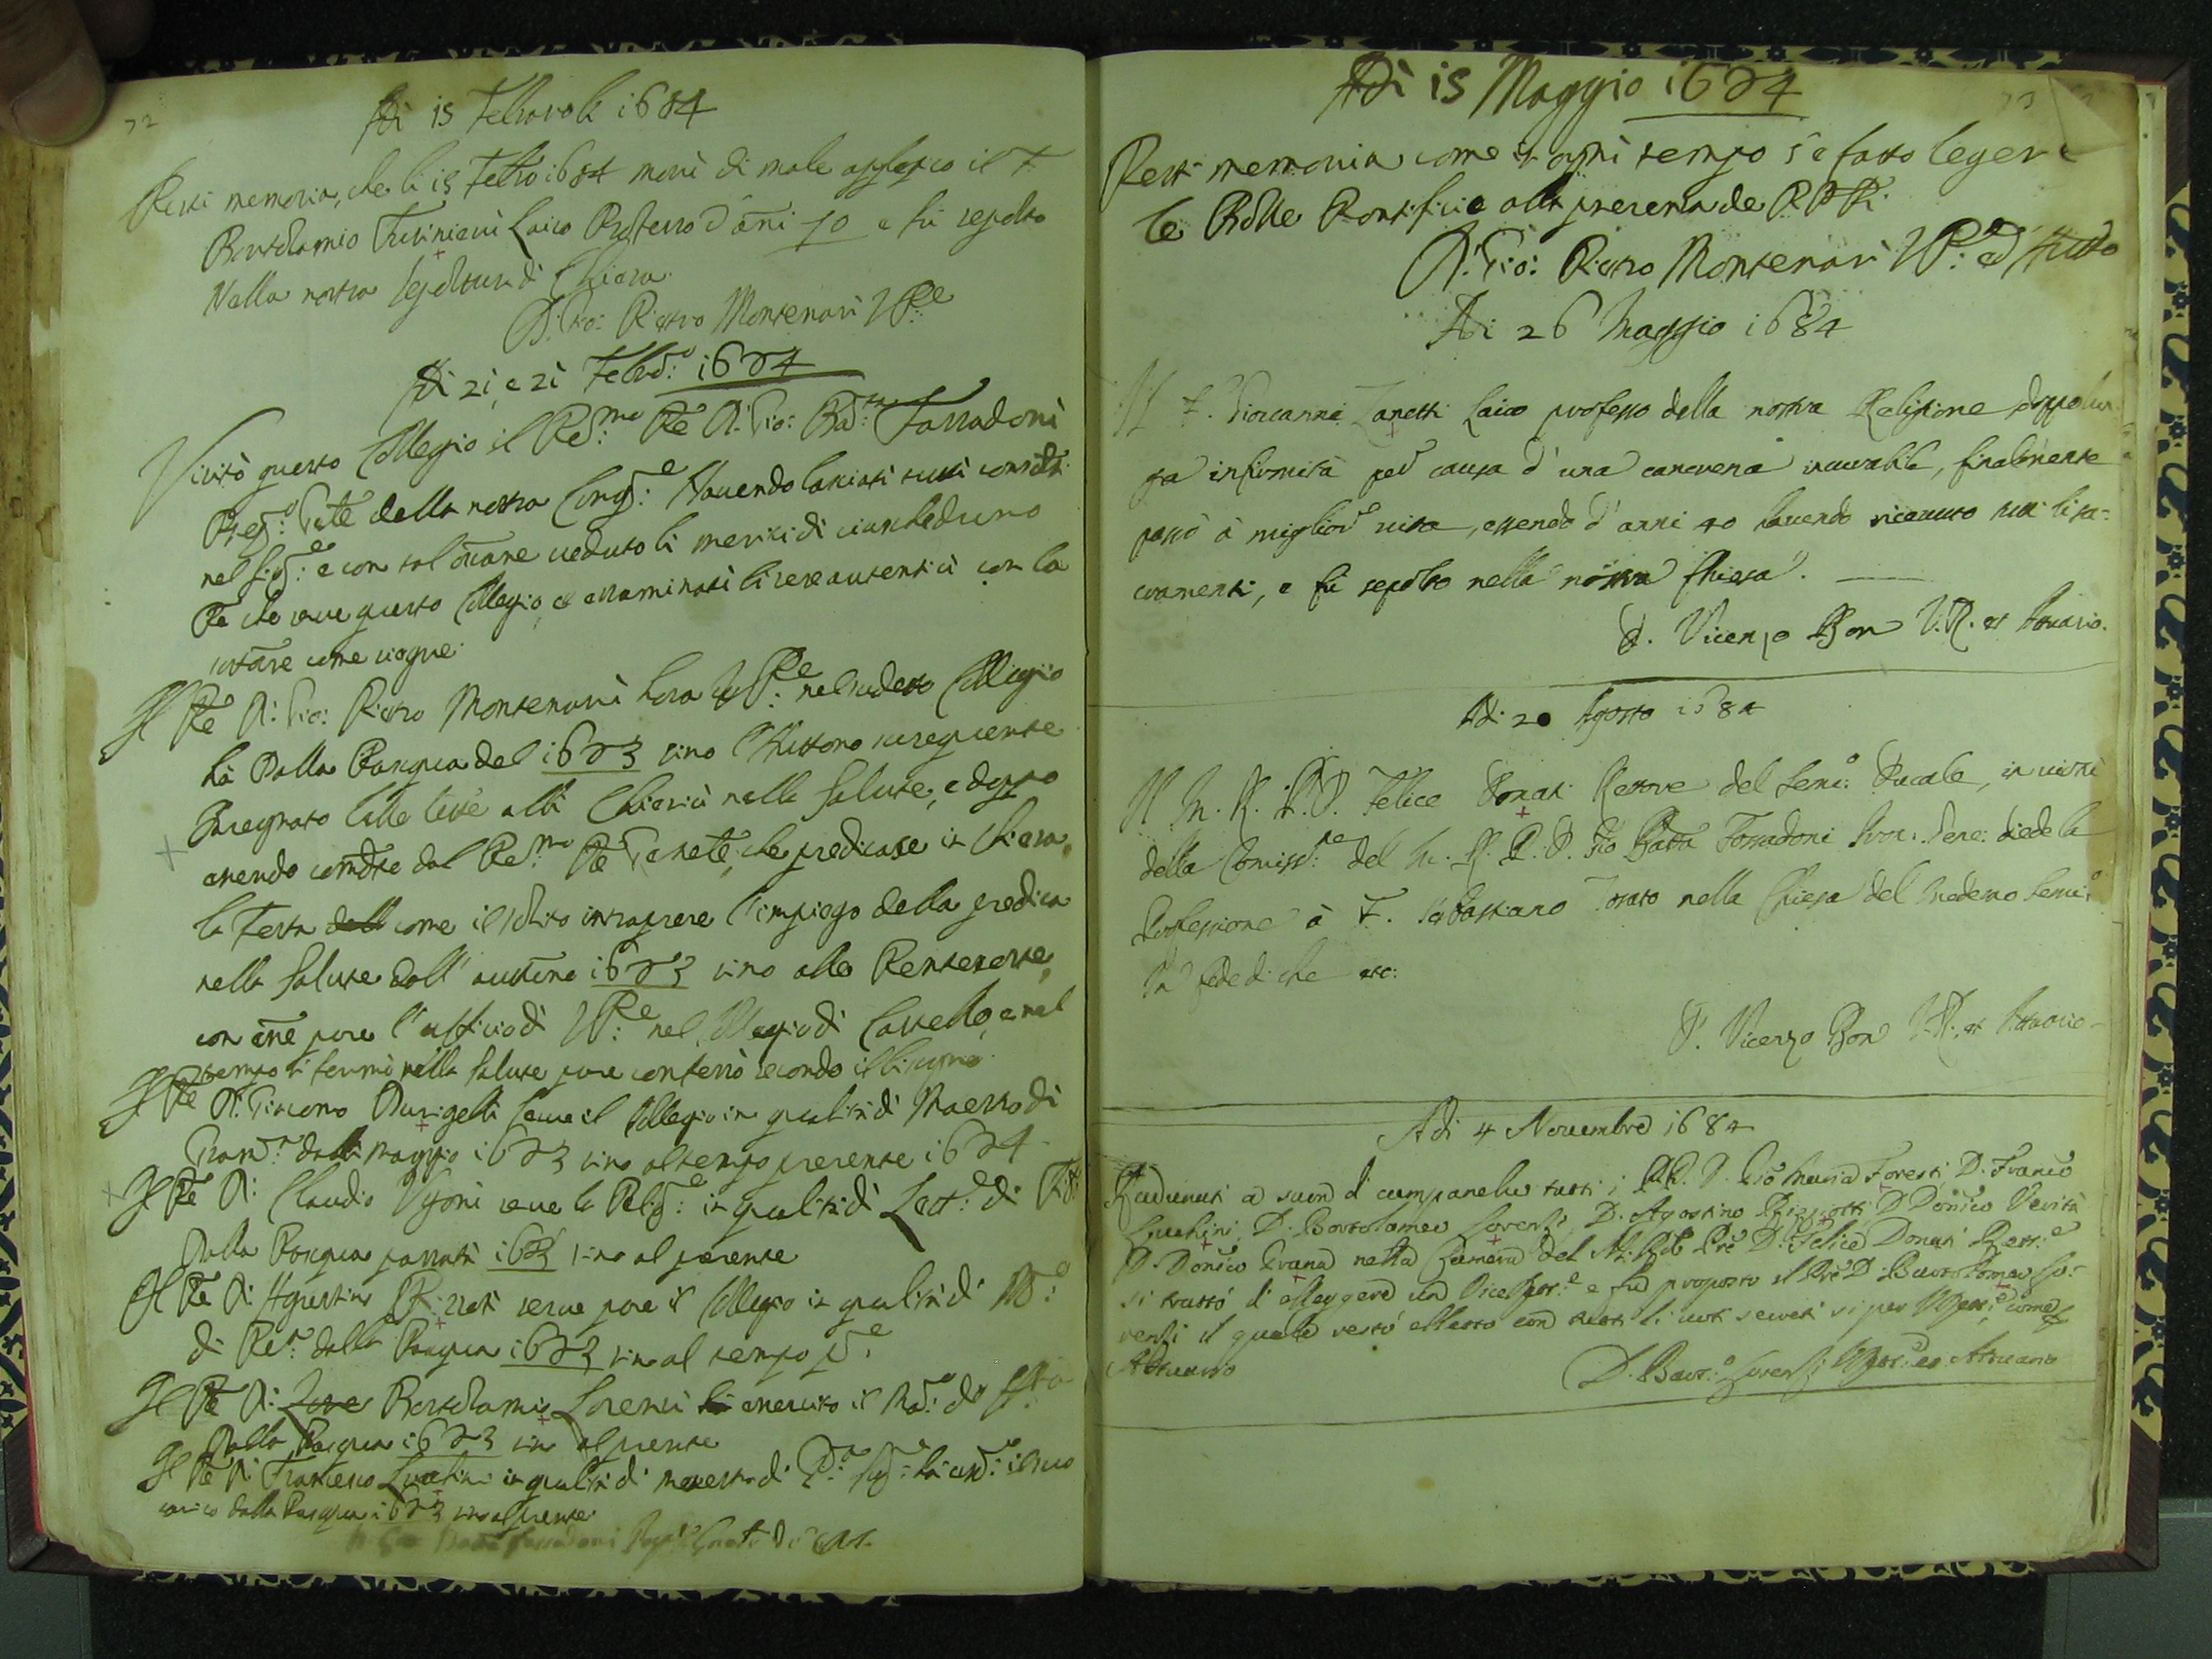 72
Adi 15 Febraro 1684
Resti memoria, che li 15 Febro 1684 morì di male il F.
Bortolamio Laico Professo d'ani 70 e fù sepolto
Nella nostra sepoltura di Chiesa.
D. Gio: Pietro Montenari VRe
Adi 21, e 21 Febro: 1684
Visitò questo Collegio il Redmo: Pre D. Gio: Batta: Tassadoni
della nostra Congne: Hauendo lasciati tutti consolati
nel Sigre: e con tal ocāne ueduto li meriti di ciascheduno
Pre che serue questo Collegio, et essaminati li rese autentici con la
come siegue:
Il Pre D: Gio: Pietro Montenari hora VRe: nel sudetto Collegio
hà Dalla Pasqua del 1683 sino l'Autono susequente
Insegnato alli Chierici nella Salute, e doppo
essendo dal Redmo Pre Genele, che predicase in Chiesa,
la festa dell come il solito intraprese l'impiego della predica
nella Salute dall' autūno 1683 sino alle Pentecoste,
con āne pure l'ufficio di VRe: nel Collegio di Castello, e nel
tempo si fermò nella Salute pure confessò secondo il bisogno.
Il Pre D. Giacomo serue il Collegio in qualità di Maestro di
Gramca: dalli Maggio 1683 sino al tempo presente 1684
Il Pre D: Claudio Ugoni serue la Relige: in qualità di Lettre: di
Dalla Pasqua passata 1683 sino al presente
Il Pre D: Agustino serue pure il Collegio in qualità di Mo:
di Reca: dalla Pasqua 1683 sino al tempo pte
Il Pre D: Bortolamio Lorensi hà esercito il Mo: di
Dalla Pasqua 1683 sino al presente
Il Pre D: Francesco Luchini in qualità di maestro di il suo
carico dalla Pasqua 1683 sino al presente
73
Adì 15 Maggio 1684
Resti memoria come in ogni tempo s'è fatto legere
le Bolle Pontificie alla presenza de RR PP.
D. Gio: Pietro Montenari VRe: ed Attto
Adi 26 Maggio 1684
Il F. Giouanni Zanetti Laico professo della nostra Religione doppo lun-
ga infirmità per causa d'una cancrena incurabile, finalmente
passò à miglior uita, essendo d'anni 40 hauendo riceuuto tutti li sa=
cramenti, e fù sepolto nella nostra Chiesa.
D. Vicenzo Bon V.R. et Attuario.
Adi 20 Agosto 1684
Il M. R. P. D. Felice Donati Rettore del Semo: Ducale, in uirtù
della Comissne: del M. R. P. D. Gio Batta Tassadoni Proc: Gene: diede la
Professione à F. Sebastiano Tosato nella Chiesa del medemo Semio:
In fede di che etc:
D. Vicenzo Bon V.R. et Attuario-
Adi 4 Nouembre 1684
Radunati a suon di campanello tutti i RR. P. D. Gio Maria Foresti, D. Franco
Luchini, D. Bortolameo Lorensi, D. Agostino D Donico Verità
D. Donico Grana nella Camera del M. Rdo Pre D. Felice Donati Rettre
si trattò di elleggere un Vice Rettre e fu proposto il Pre D. Bortolomeo Lo-
rensi il quale restò elletto con tutti li uoti secreti si per VRettre, come per
Attuario
D. Bortо: Lorensi VRettre: ed Attuario